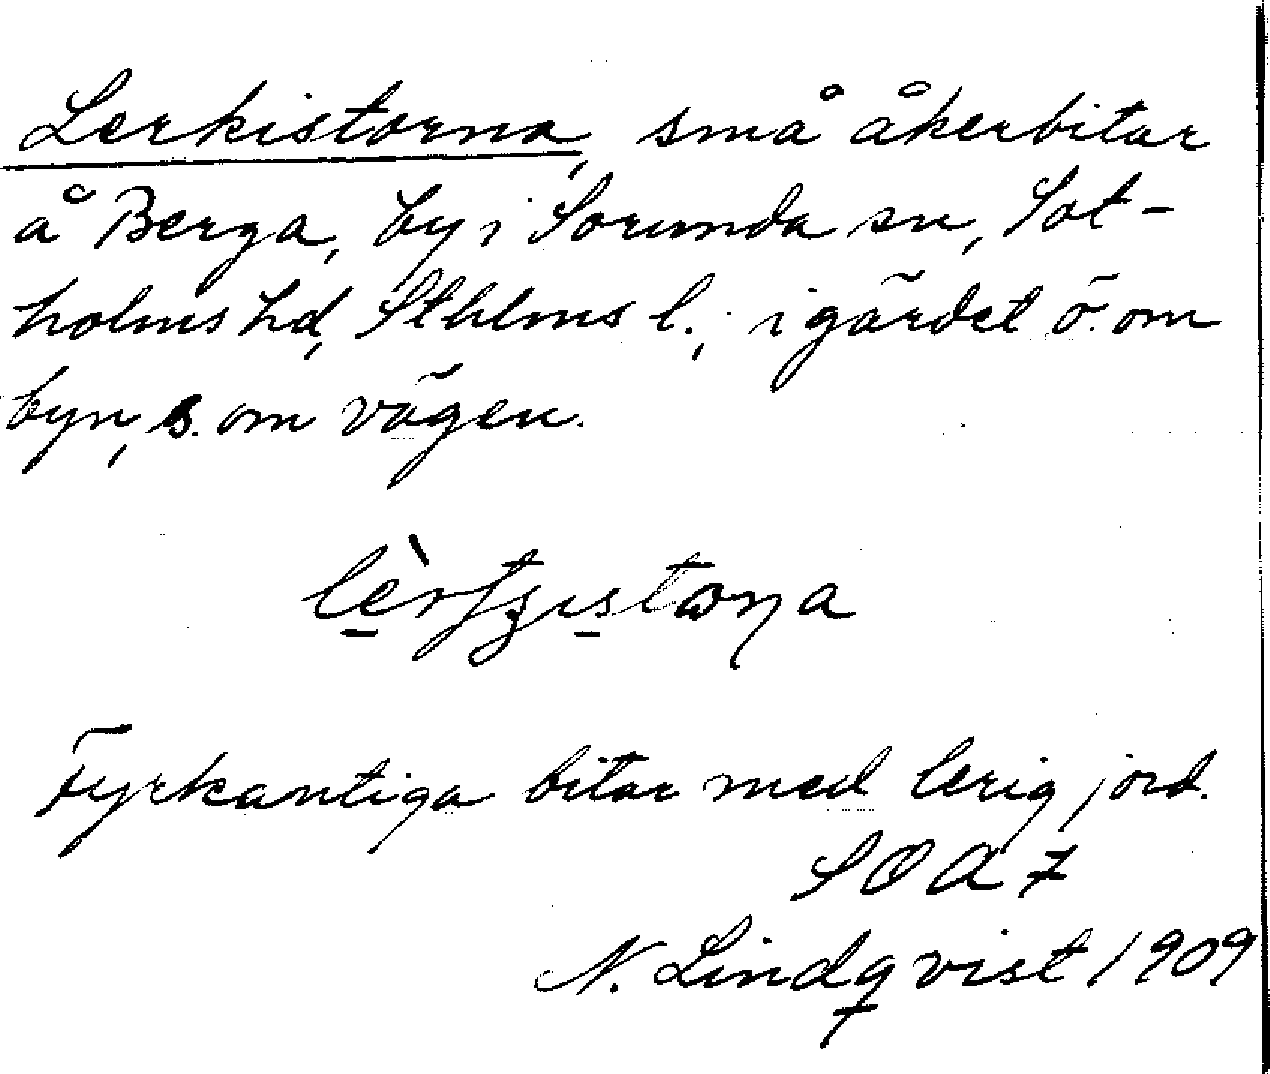 Lerkistorna, små åkerbitar
å Berga, by i Sorunda sn, Sot-
holms hd, Sthlms l.; i gärdet ö. om
byn, s. om vägen.
Fyrkantiga bitar med lerig jord.
SOA 7
N. Lindqvist 1909